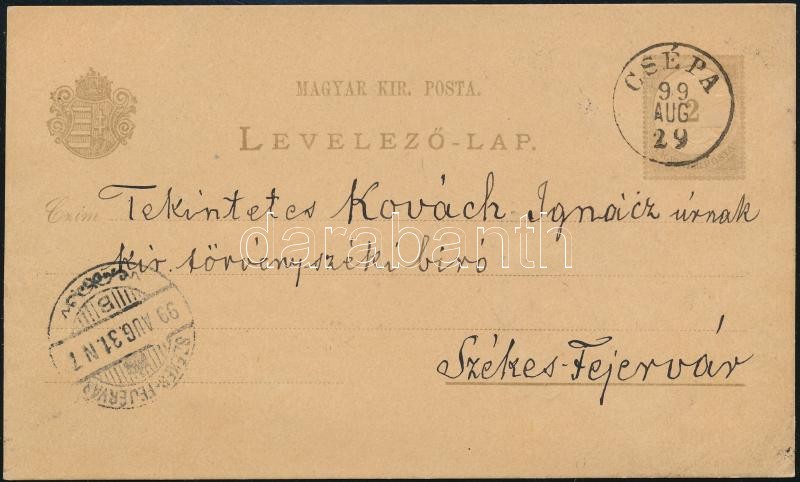 MAGYAR KIR. POSTA.
LEVELEZŐ-LAP.
CSÉPA
99
AUG
29
2
Czim Tekintetes Kovách Ignácz úrnak
kir. törvényszéki biró
Székes-Fejervár
darabanth
99 AUG. 31. N 7
B
SZÉKES-FEJÉRVÁR